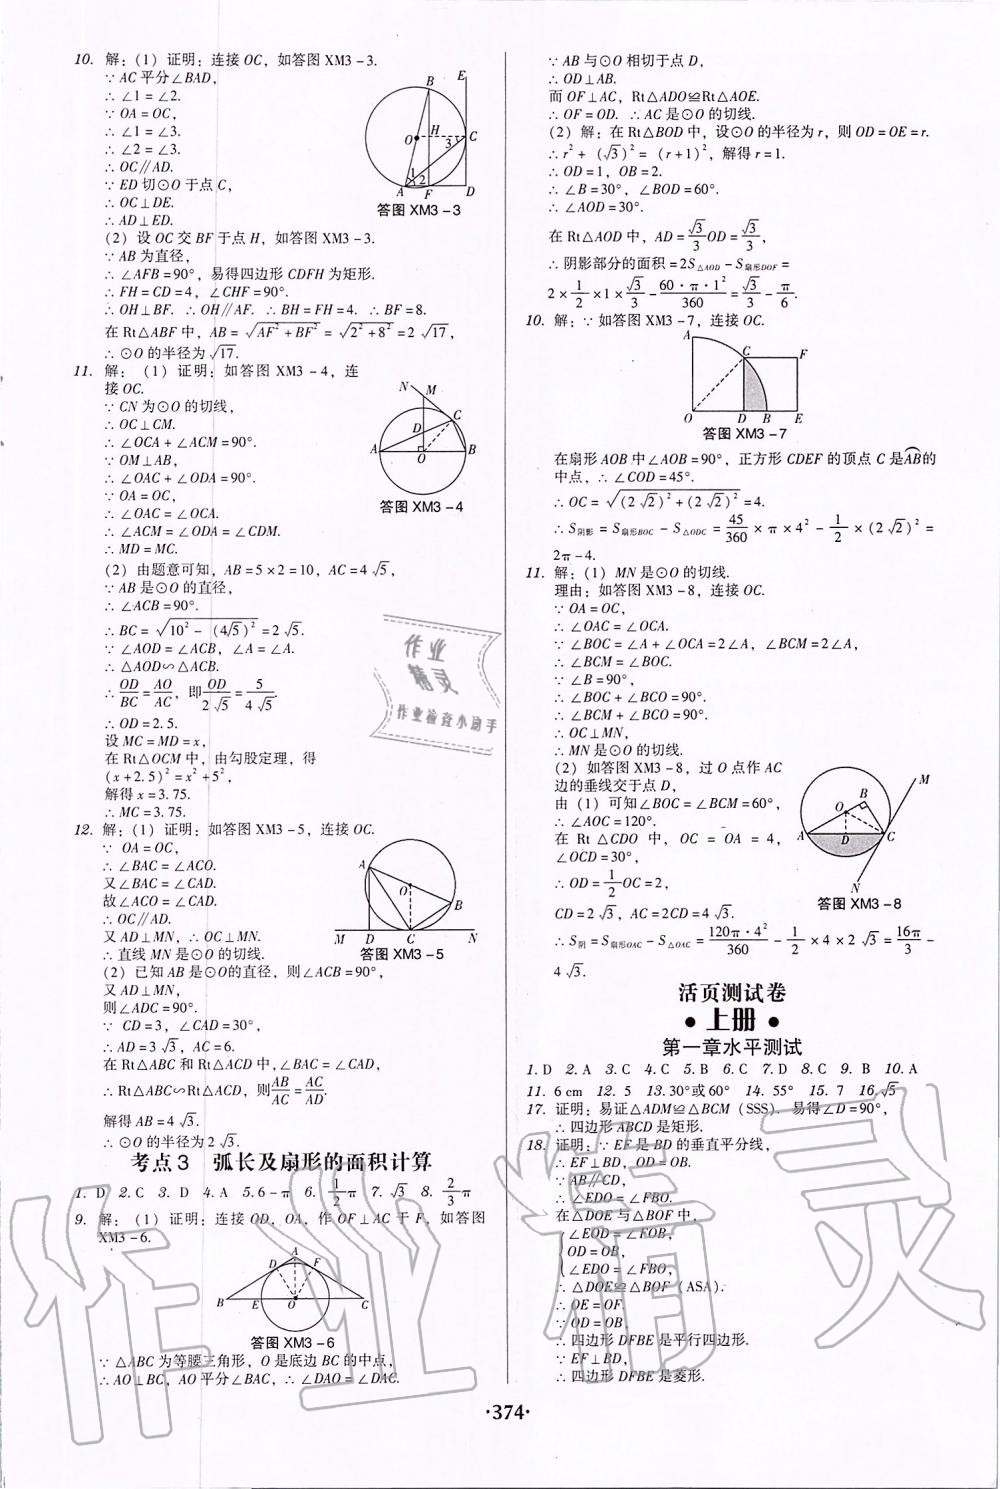 10. 解：(1) 证明：连接 OC，如答图 XM3-3.
∵ AC 平分∠BAD，
∴ ∠1=∠2.
∵ OA=OC，
∴ ∠1=∠3.
∴ ∠2=∠3.
∴ OC∥AD.
∵ ED 切⊙O 于点 C，
∴ OC⊥DE.
∴ AD⊥ED.
答图 XM3-3
(2) 设 OC 交 BF 于点 H，如答图 XM3-3.
∵ AB 为直径，
∴ ∠AFB=90°，易得四边形 CDFH 为矩形.
∴ FH=CD=4，∠CHF=90°.
∴ OH⊥BF. ∴ OH∥AF. ∴ BH=FH=4. ∴ BF=8.
在 Rt△ABF 中，AB=√(AF²+BF²)=√(2²+8²)=2√17，
∴ ⊙O 的半径为√17.
11. 解：(1) 证明：如答图 XM3-4，连
接 OC.
∵ CN 为⊙O 的切线，
∴ OC⊥CM.
∴ ∠OCA+∠ACM=90°.
∵ OM⊥AB，
∴ ∠OAC+∠ODA=90°.
∵ OA=OC，
∴ ∠OAC=∠OCA.
∴ ∠ACM=∠ODA=∠CDM.
∴ MD=MC.
答图 XM3-4
(2) 由题意可知，AB=5×2=10，AC=4√5，
∵ AB 是⊙O 的直径，
∴ ∠ACB=90°.
∴ BC=√(10²-(4√5)²)=2√5.
∵ ∠AOD=∠ACB，∠A=∠A.
∴ △AOD∽△ACB.
∴ OD/BC=AO/AC，即 OD/2√5=5/4√5.
∴ OD=2.5.
设 MC=MD=x，
在 Rt△OCM 中，由勾股定理，得
(x+2.5)²=x²+5²，
解得 x=3.75.
∴ MC=3.75.
12. 解：(1) 证明：如答图 XM3-5，连接 OC.
∵ OA=OC，
∴ ∠BAC=∠ACO.
又∠BAC=∠CAD.
故∠ACO=∠CAD.
∴ OC∥AD.
又 AD⊥MN，∴ OC⊥MN.
∴ 直线 MN 是⊙O 的切线.
答图 XM3-5
(2) 已知 AB 是⊙O的直径，则∠ACB=90°.
又 AD⊥MN，
则∠ADC=90°.
∵ CD=3，∠CAD=30°，
∴ AD=3√3，AC=6.
在 Rt△ABC 和 Rt△ACD 中，∠BAC=∠CAD，
∴ Rt△ABC∽Rt△ACD，则AB/AC=AC/AD.
解得 AB=4√3.
∴ ⊙O 的半径为2√3.
考点 3 弧长及扇形的面积计算
1. D 2. C 3. D 4. A 5. 6-π 6. 1/2π 7. √3 8. 2/3π
9. 解：(1) 证明：连接 OD，OA，作 OF⊥AC 于 F，如答图
XM3-6.
答图 XM3-6
∵ △ABC 为等腰三角形，O 是底边 BC 的中点，
∴ AO⊥BC，AO 平分∠BAC，∴ ∠DAO=∠DAC.
∵ AB 与⊙O 相切于点 D，
∴ OD⊥AB.
而 OF⊥AC，Rt△ADO≌Rt△AOE.
∴ OF=OD. ∴ AC 是⊙O 的切线.
(2) 解：在 Rt△BOD 中，设⊙O 的半径为 r，则 OD=OE=r.
∴ r²+(√3)²=(r+1)²，解得 r=1.
∴ OD=1，OB=2.
∴ ∠B=30°，∠BOD=60°.
∴ ∠AOD=30°.
在 Rt△AOD 中，AD=√3/3OD=√3/3，
∴ 阴影部分的面积=2S△AOD-S扇形DOF=
2×1/2×1×√3/3-60·π·1²/360=√3/3-π/6.
10. 解：∵ 如答图 XM3-7，连接 OC.
答图 XM3-7
在扇形 AOB 中∠AOB=90°，正方形 CDEF 的顶点 C 是AB的
中点，∴ ∠COD=45°.
∴ OC=√((2√2)²+(2√2)²)=4.
∴ S阴影=S扇形BOC-S△ODC=45/360×π×4²-1/2×(2√2)²=
2π-4.
11. 解：(1) MN 是⊙O 的切线.
理由：如答图 XM3-8，连接 OC.
∵ OA=OC，
∴ ∠OAC=∠OCA.
∴ ∠BOC=∠A+∠OCA=2∠A，∠BCM=2∠A，
∴ ∠BCM=∠BOC.
∵ ∠B=90°，
∴ ∠BOC+∠BCO=90°.
∴ ∠BCM+∠BCO=90°.
∴ OC⊥MN，
∴ MN 是⊙O 的切线.
(2) 如答图 XM3-8，过 O 点作 AC
边的垂线交于点 D，
由 (1) 可知∠BOC=∠BCM=60°，
∴ ∠AOC=120°.
在 Rt△CDO 中，OC=OA=4，
∠OCD=30°，
∴ OD=1/2OC=2，
CD=2√3，AC=2CD=4√3.
答图 XM3-8
∴ S阴=S扇形OAC-S△OAC=120π·4²/360-1/2×4×2√3=16π/3-
4√3.
活页测试卷
• 上册 •
第一章水平测试
1. D 2. A 3. C 4. C 5. B 6. C 7. D 8. C 9. B 10. A
11. 6 cm 12. 5 13. 30°或60° 14. 55° 15. 7 16. √5
17. 证明：易证△ADM≌△BCM (SSS). 易得∠D=90°，
∴ 四边形 ABCD 是矩形.
18. 证明：∵ EF 是 BD 的垂直平分线，
∴ EF⊥BD，OD=OB.
∵ AB∥CD，
∴ ∠EDO=∠FBO.
∴ 在△DOE 与△BOF 中，
∠EOD=∠FOB，
OD=OB，
∠EDO=∠FBO，
∴ △DOE≌△BOF (ASA).
∴ OE=OF.
∵ OD=OB，
∴ 四边形 DFBE 是平行四边形.
∵ EF⊥BD，
∴ 四边形 DFBE 是菱形.
·374·
作业
精灵
作业检查小助手
作业精灵